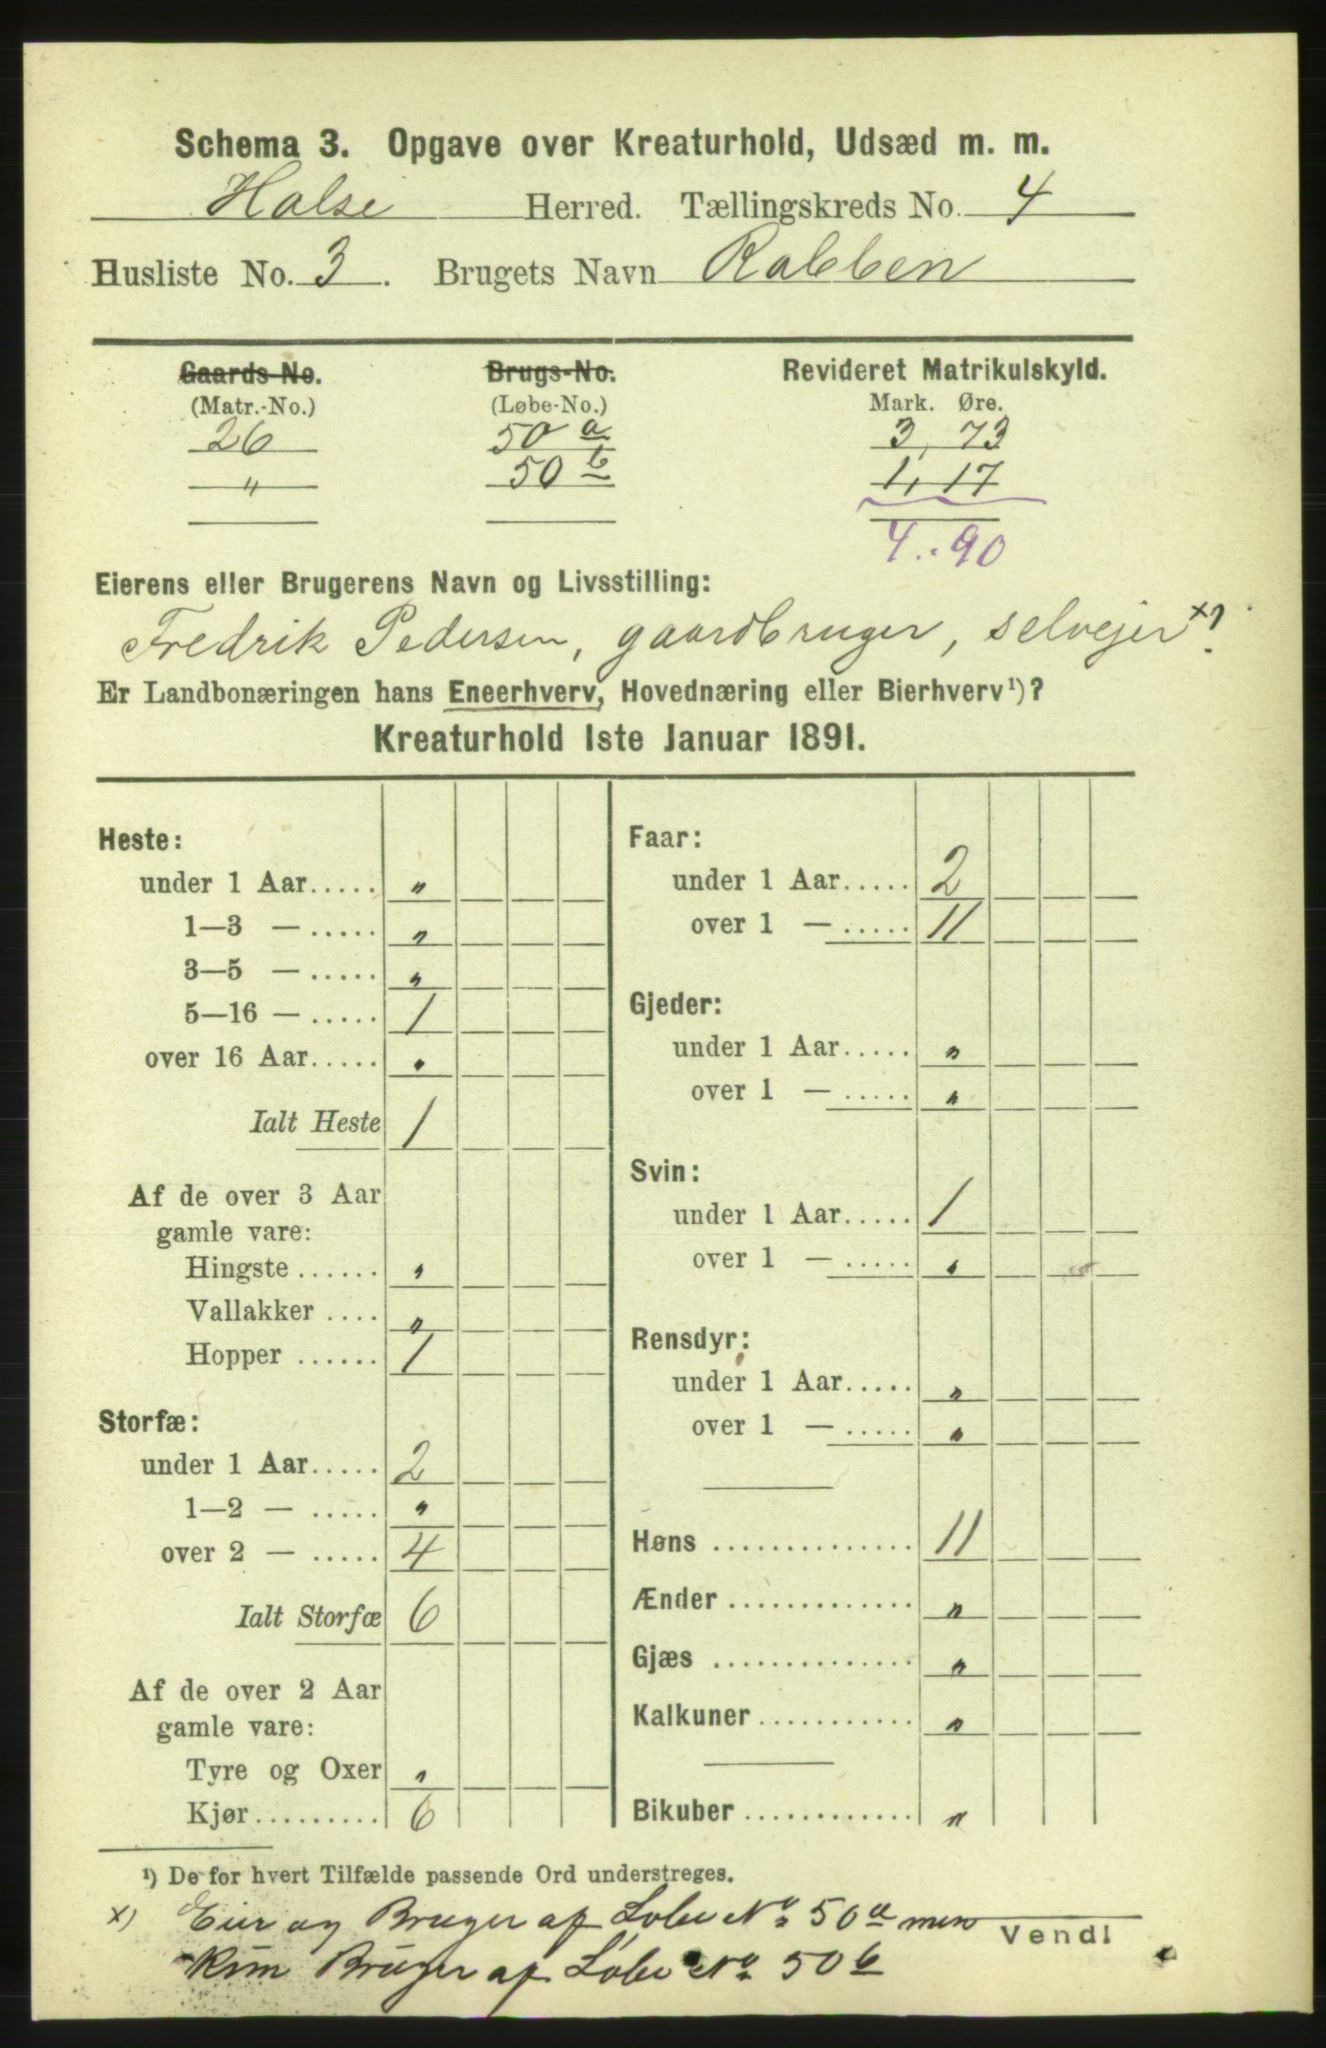 Schema 3. Opgave over Kreaturhold, Udsæd m. m.
Halse Herred. Tællingskreds No. 4
Husliste No. 3. Brugets Navn Rabben
Gaards-No. Brugs-No. Revideret Matrikulskyld.
(Matr.-No.) (Løbe-No.) Mark. Øre.
26 50 a 3, 73
" 50 b 1, 17
4. 90
Eierens eller Brugerens Navn og Livsstilling:
Fredrik Pedersen, gaardbruger, selvejer x)
Er Landbonæringen hans Eneerhverv, Hovednæring eller Bierhverv¹)?
Kreaturhold 1ste Januar 1891.
Heste:
under 1 Aar..... "
1—3 — ..... "
3—5 — ..... "
5—16 — ..... 1
over 16 Aar..... "
Ialt Heste 1
Af de over 3 Aar
gamle vare:
Hingste ...... "
Vallakker .... "
Hopper ...... 1
Storfæ:
under 1 Aar..... 2
1—2 — ..... "
over 2 — ..... 4
Ialt Storfæ 6
Af de over 2 Aar
gamle vare:
Tyre og Oxer "
Kjør......... 6
Faar:
under 1 Aar..... 2
over 1 — ..... 11
Gjeder:
under 1 Aar..... "
over 1 — ..... "
Svin:
under 1 Aar..... 1
over 1 — ..... "
Rensdyr:
under 1 Aar..... "
over 1 — ..... "
Høns .............. 11
Ænder ............. "
Gjæs .............. "
Kalkuner ........... "
Bikuber ............ "
¹) De for hvert Tilfælde passende Ord understreges.
x) Eier og Bruger af Løbe No 50 a men
kun Bruger af Løbe No 50 b
Vend!